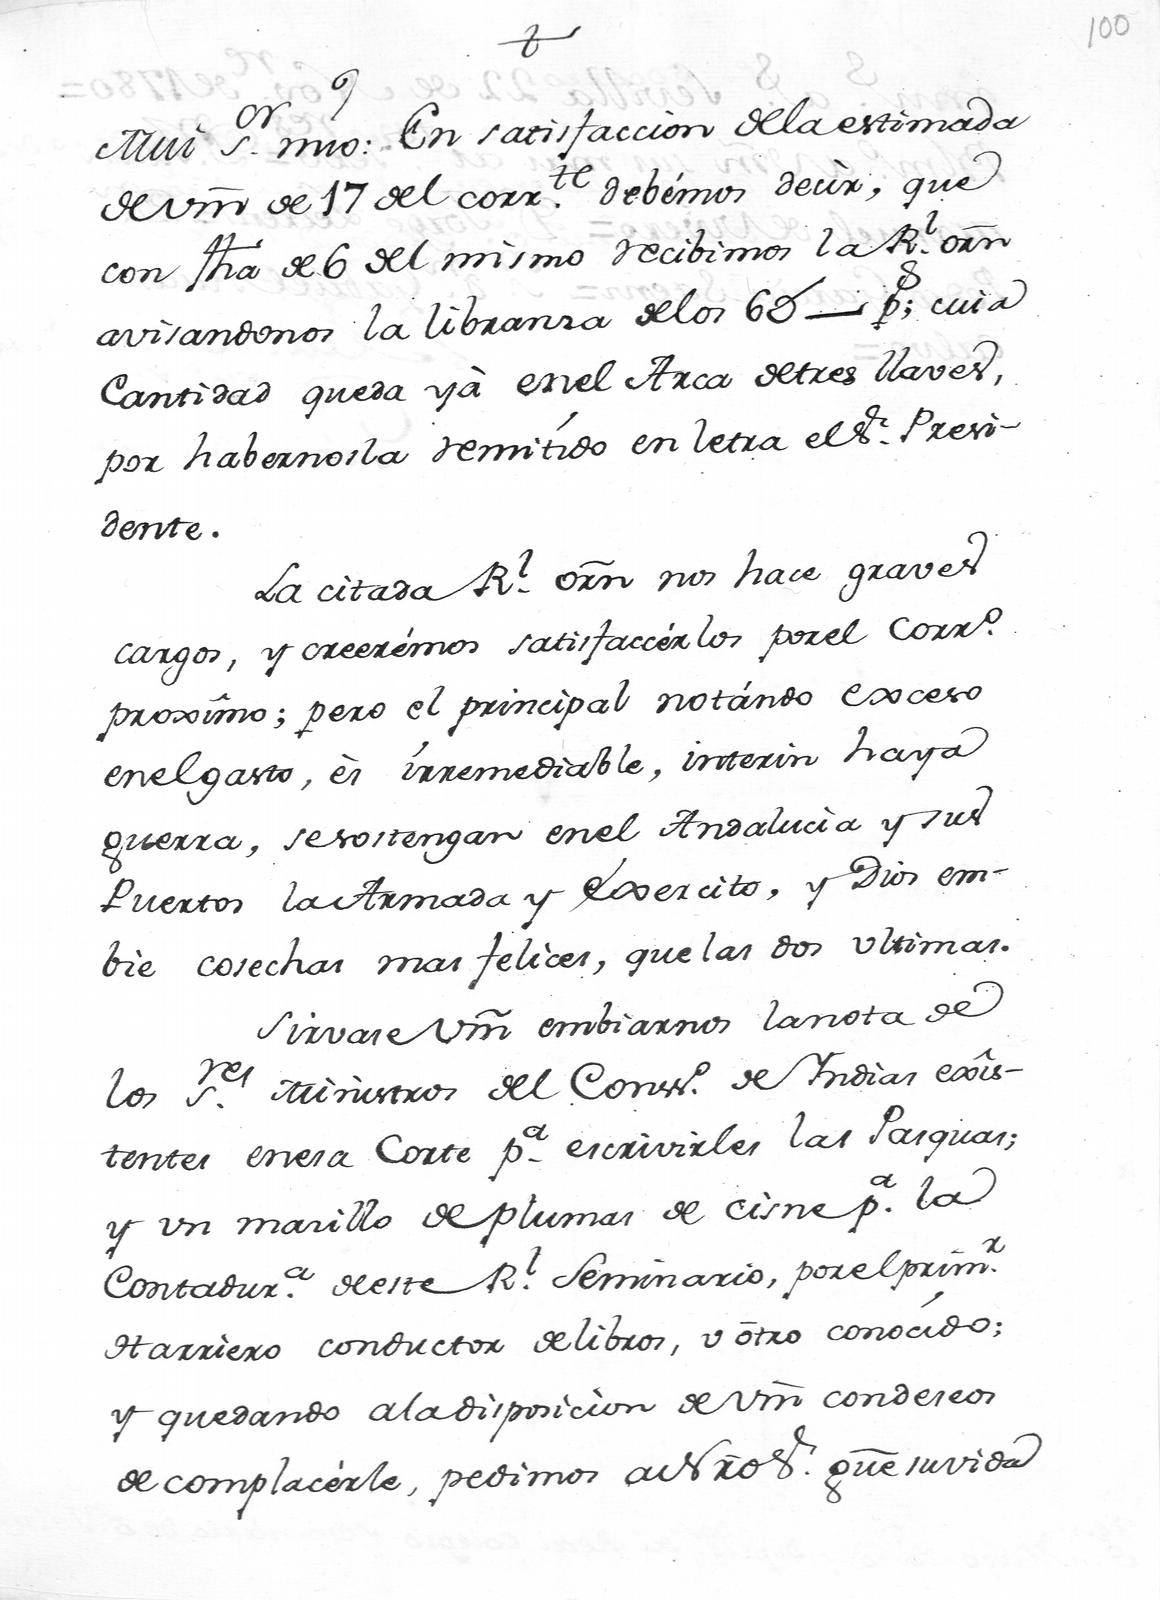 100
Mui S.or mio: En satisfaccion dela estimada
de Vm̃ de 17 del corr.te debémos decir, que
con fh̃a de 6 del mismo recibimos la R.l orñ
avisandonos la libranza delos 6 p.s; cuia
Cantidad queda yà enel Arca detres llaves,
por habernosla remitído en letra el S.r Presi-
dente.
La citada R.l orñ nos hace graves
cargos, y creerémos satisfaccérlos porel Corr.o
proxîmo; pero el principal notándo exceso
enel gasto, ès írremediable, interin haya
guerra, sesostengan enel Andalucia y sus
Puertos la Armada y Exercito, y Dios em-
bie cosechas mas felices, que las dos ultimas.
Sirvase Vm̃ embiarnos lanota de
los S.res Ministros del Cons.o de Indias exîs-
tentes enesa Corte p.a escrivirles las Pasquas;
y vn masillo de plumas de cisne p.a la
Contadur.a deeste R.l Seminario, porel prim.r
Harriero conductor de libros, v ōtro conocído;
y quedando aladisposicion de Vm̃ condeseos
de complacérle, pedimos a Ñro S.r güe suvida